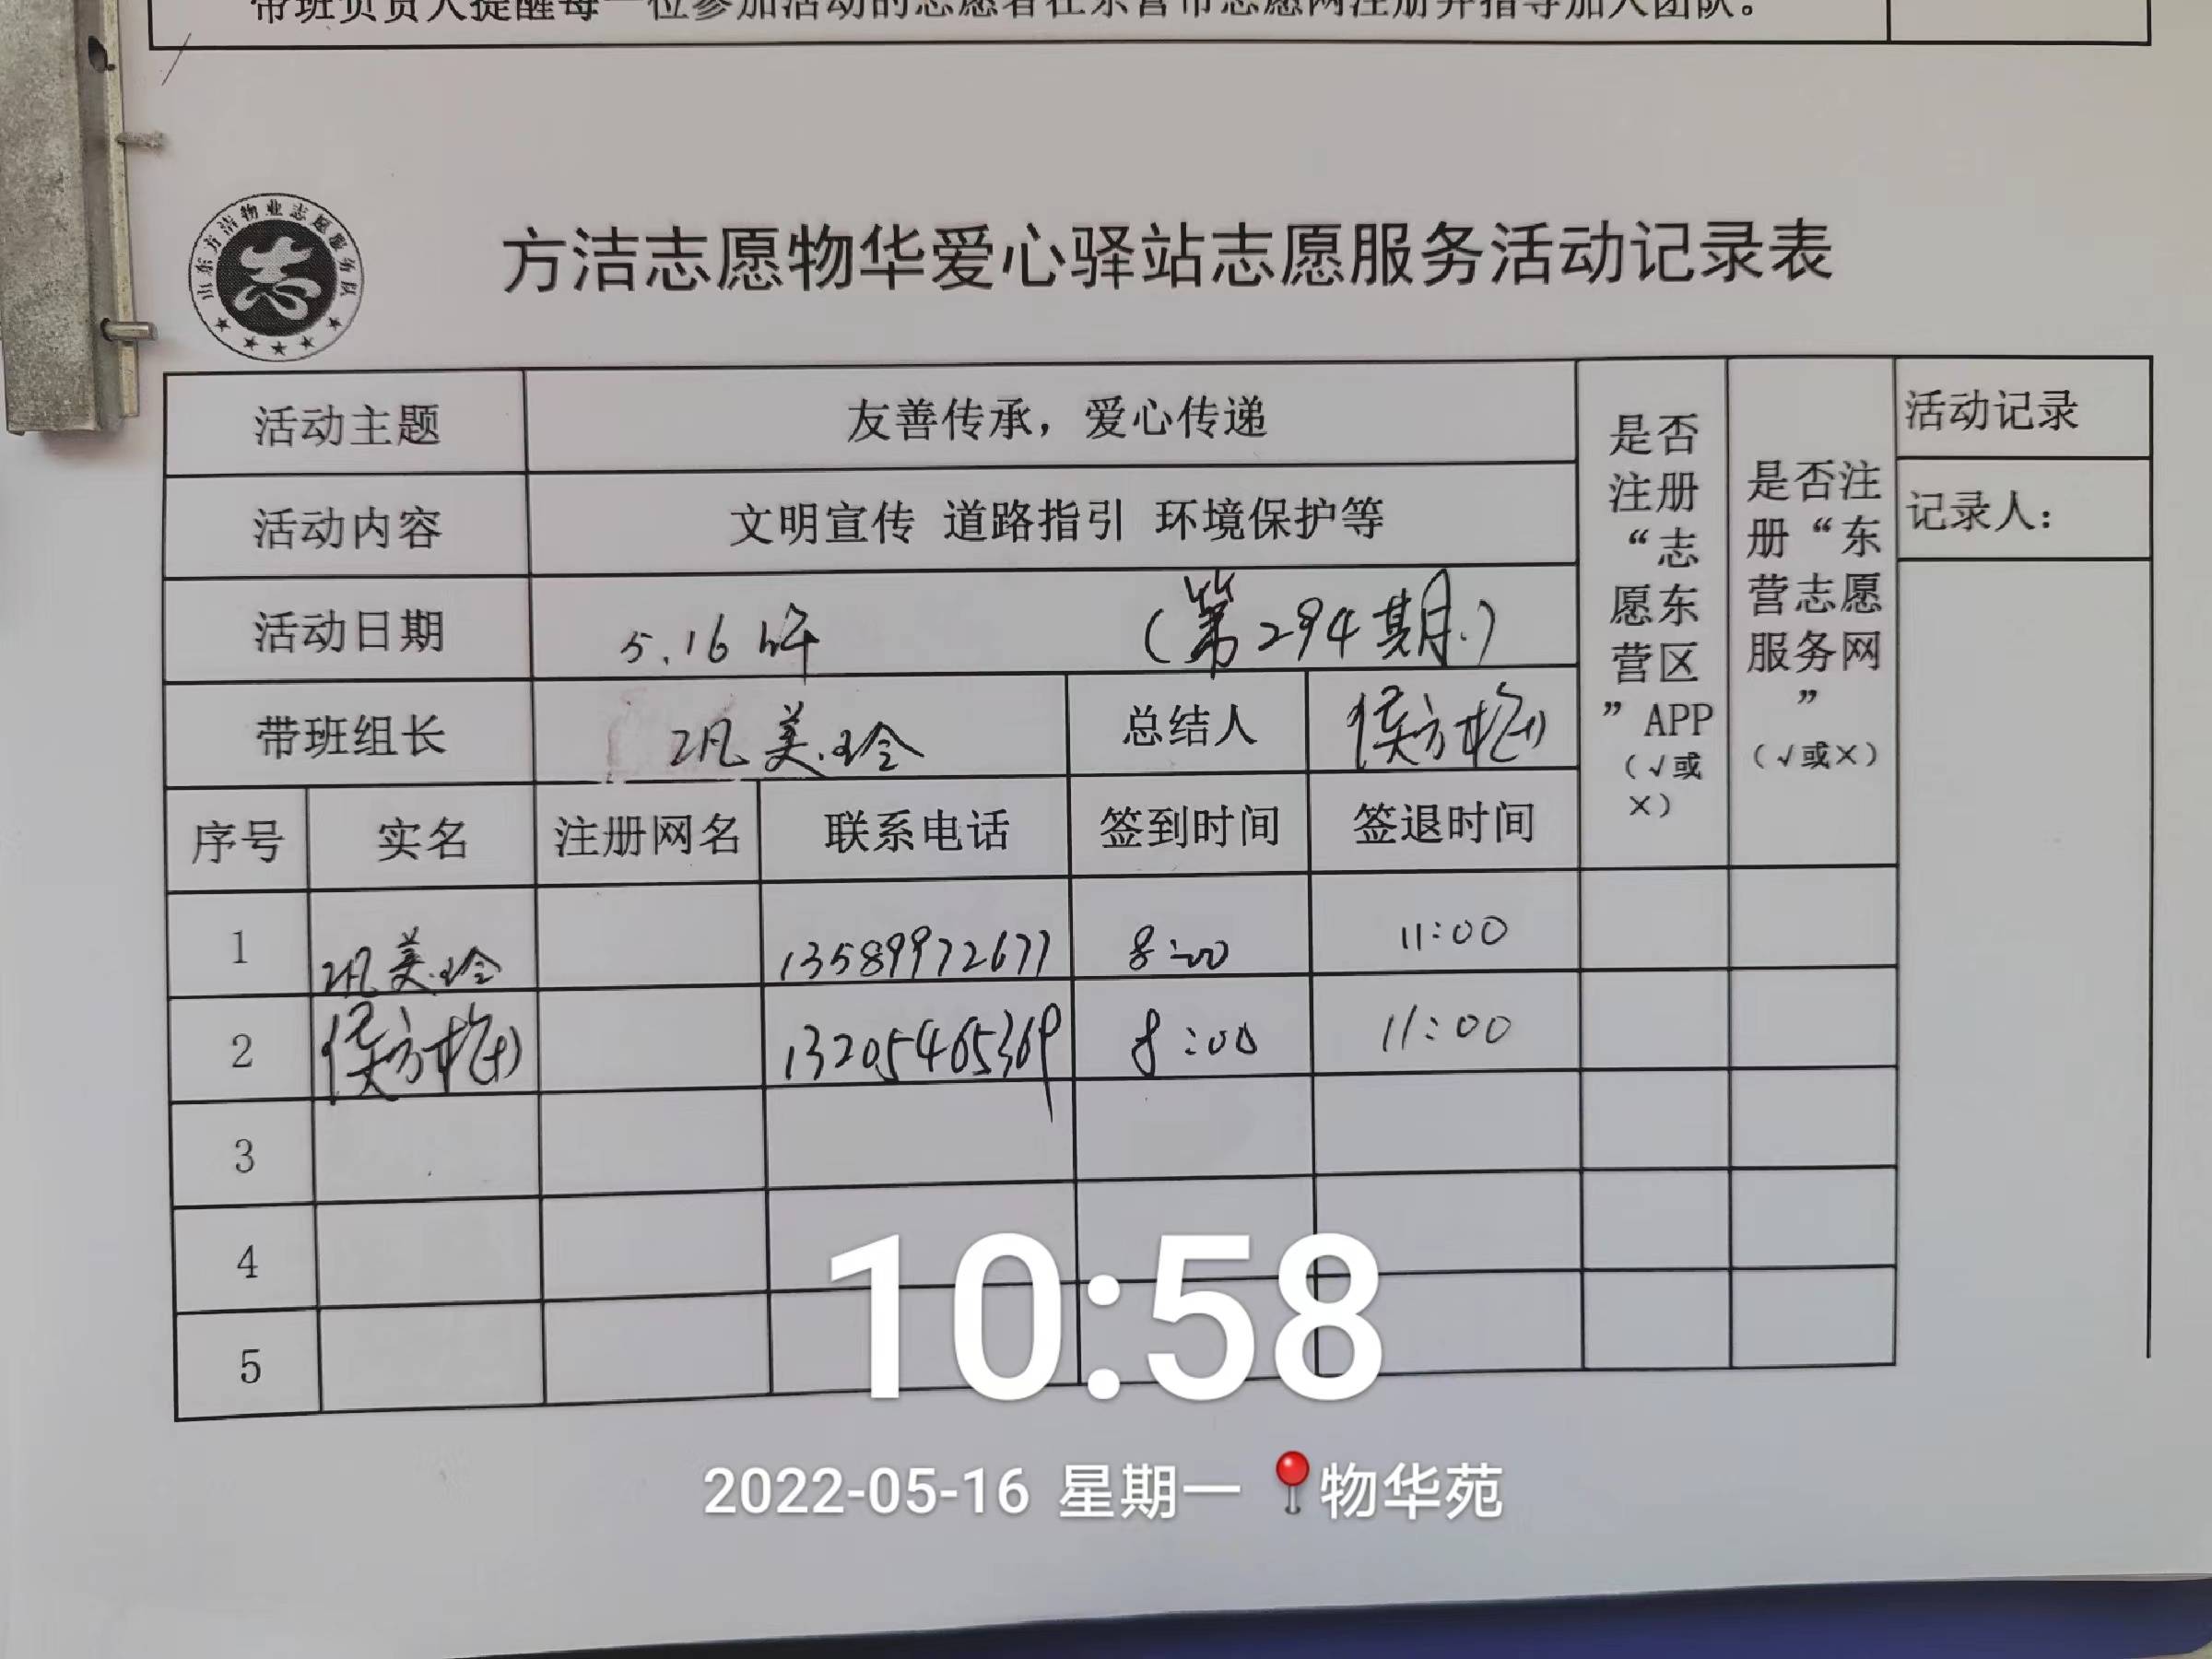 带班负责人提醒每一位参加活动的志愿者在东营市志愿网注册并指导加入团队。
山东方洁物业志愿服务队
方洁志愿物华爱心驿站志愿服务活动记录表
活动主题 友善传承，爱心传递
活动内容 文明宣传 道路指引 环境保护等
活动日期 5.16 （第294期）
带班组长 美玲 总结人 侯方梅
序号 实名 注册网名 联系电话 签到时间 签退时间
是否注册“志愿东营区”APP（√或×）
是否注册“东营志愿服务网”（√或×）
活动记录
记录人：
1 美玲 13589972677 8:00 11:00
2 侯方梅 13205465369 8:00 11:00
3
4
5
10:58
2022-05-16 星期一 物华苑